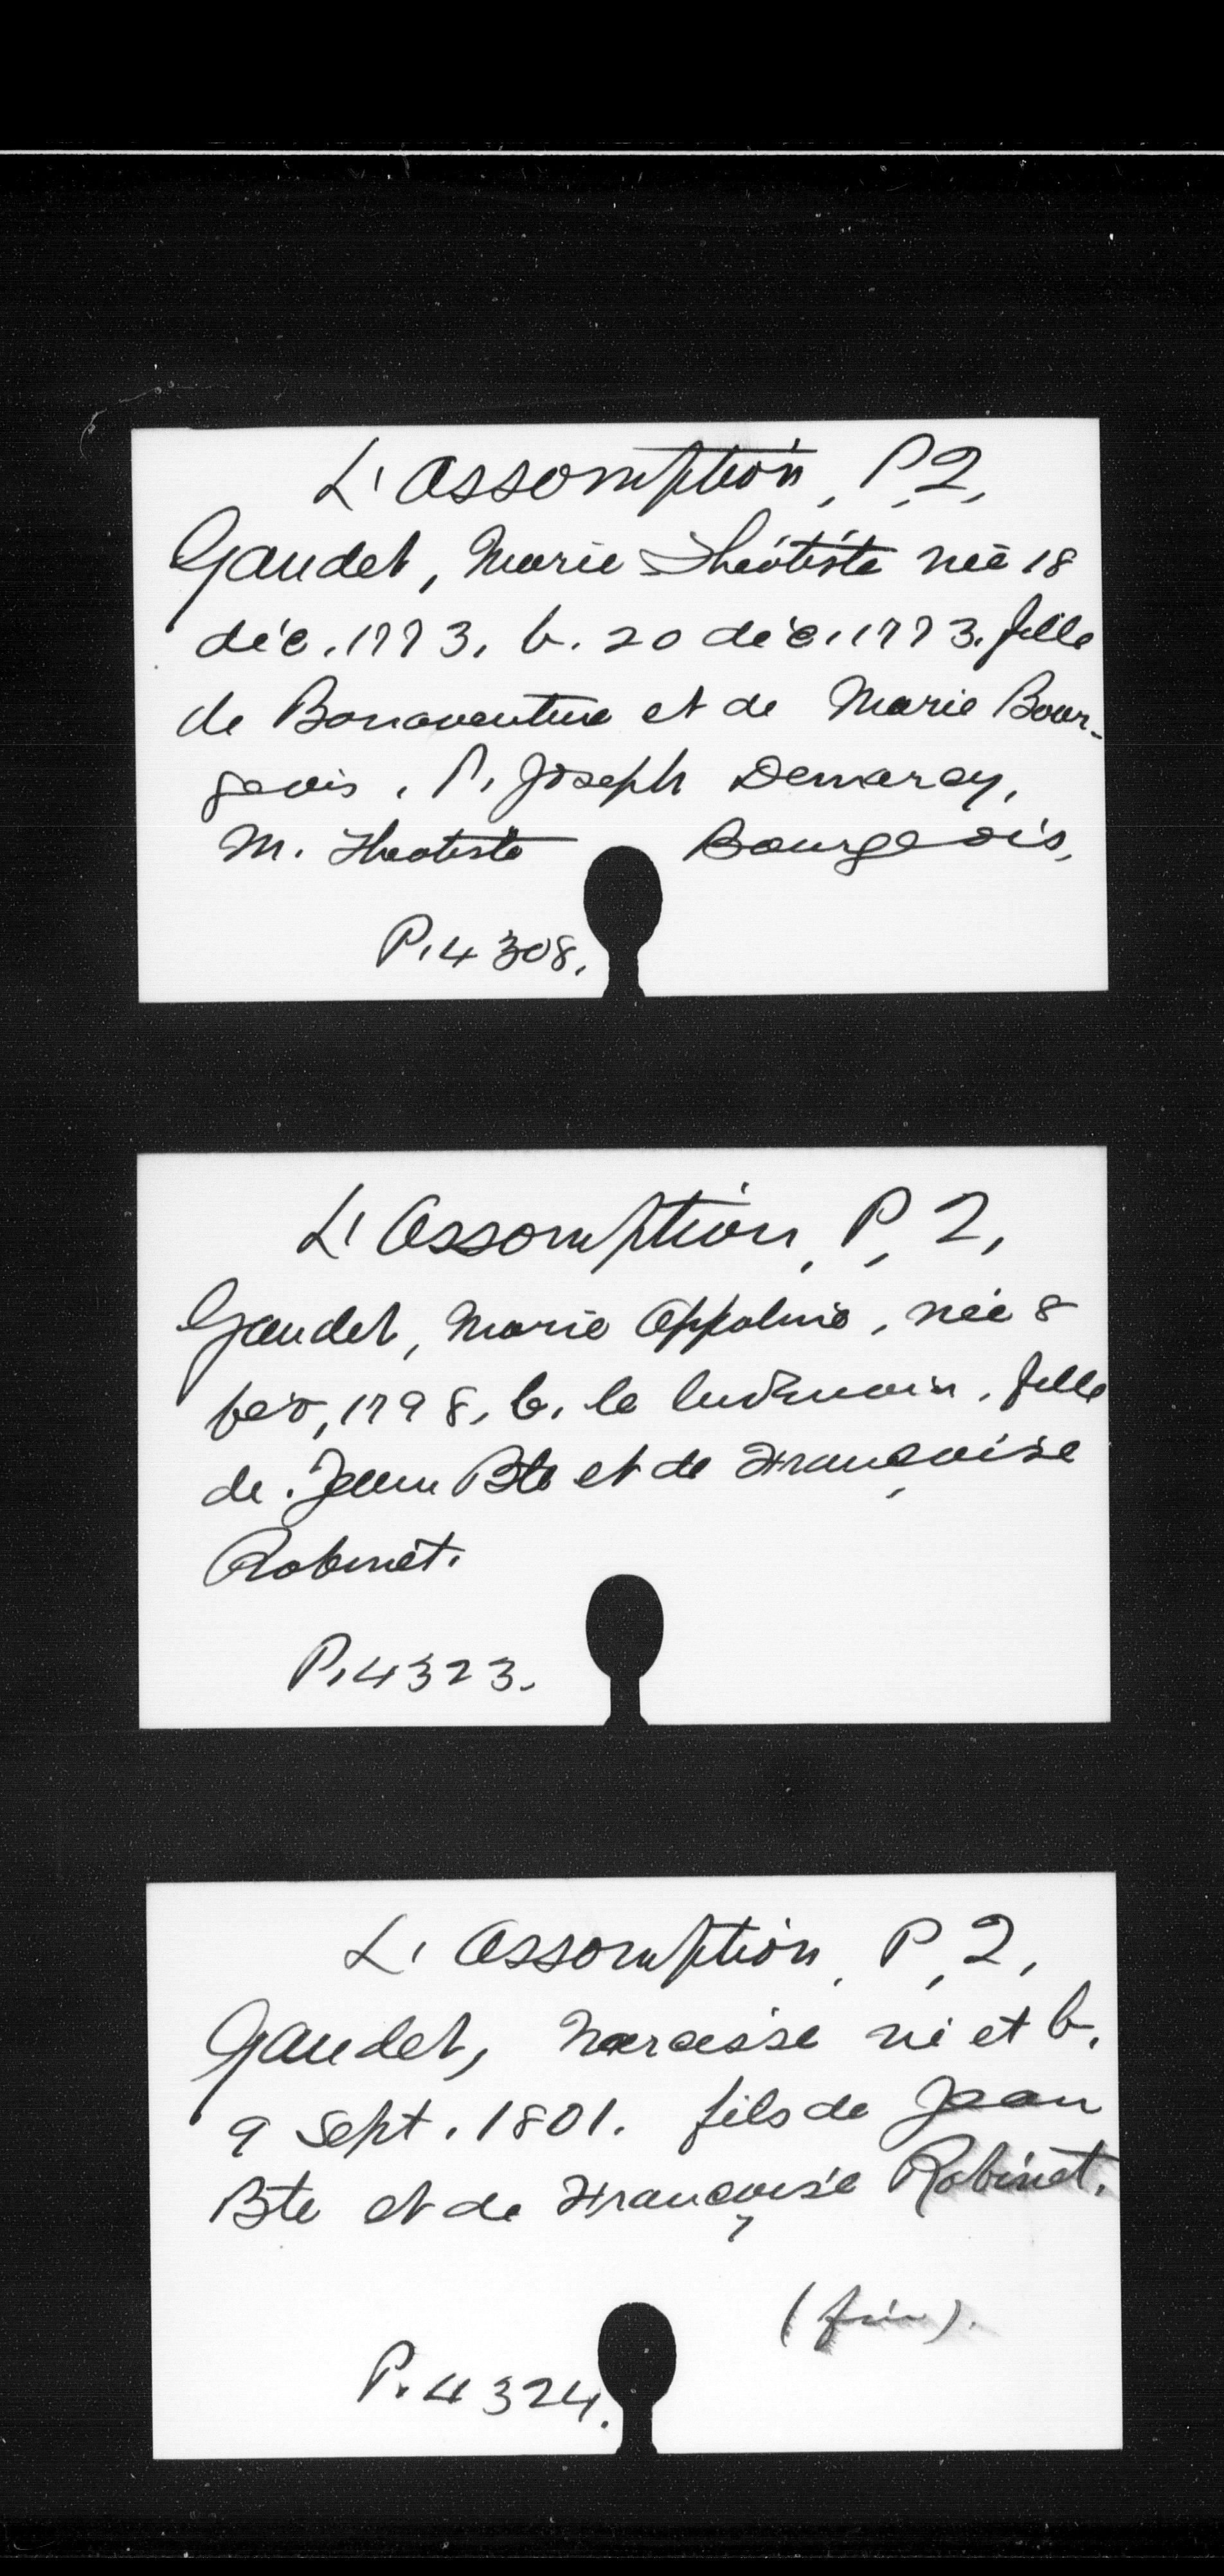 L'Assomption, P.2,
Gaudet, Marie Théotiste née 18
déc. 1773. b. 20 déc. 1773. fille
de Bonaventure et de Marie Bour-
geois. P. Joseph Demaray,
M. Theotiste Bourgeois,
P.4308.
L'Assomption, P.2,
Gaudet, Marie Appoline, née 8
1798, b. le lendemain. fille
de Jean Bte et de Françoise
Robinet.
P.4323.
L'Assomption, P.2,
Gaudet, Narcisse né et b.
9 Sept. 1801. fils de Jean
Bte et de Françoise Robinet.
(fin).
P.4324.